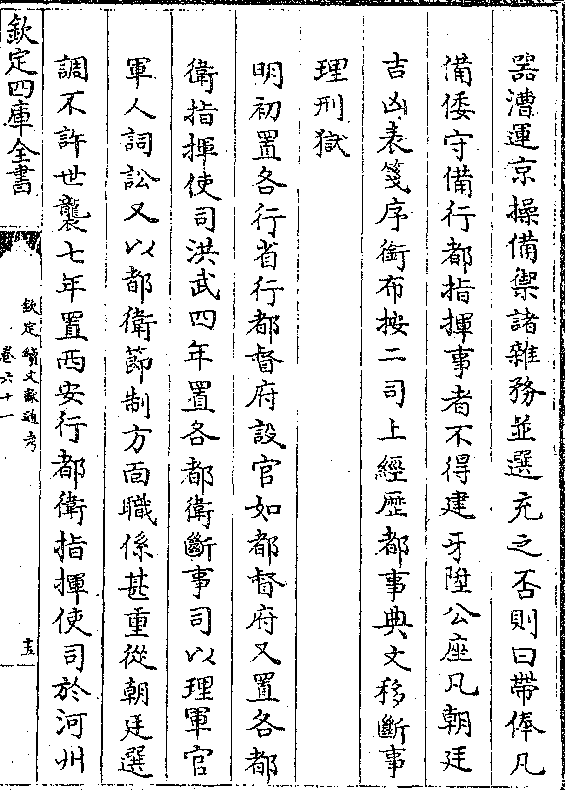 器漕運京操備禦諸雜務並選充之否則曰帶俸凡
備倭守備行都指揮事者不得建牙陞公座凡朝廷
吉凶表箋序銜布按二司上經歷都事典文移斷事
理刑獄
明初置各行省行都督府設官如都督府又置各都
衛指揮使司洪武四年置各都衛斷事司以理軍官
軍人詞訟又以都衛節制方面職係甚重從朝廷選
調不許世襲七年置西安行都衛指揮使司於河州
欽定四庫全書
欽定續文獻通考
卷六十一
十五